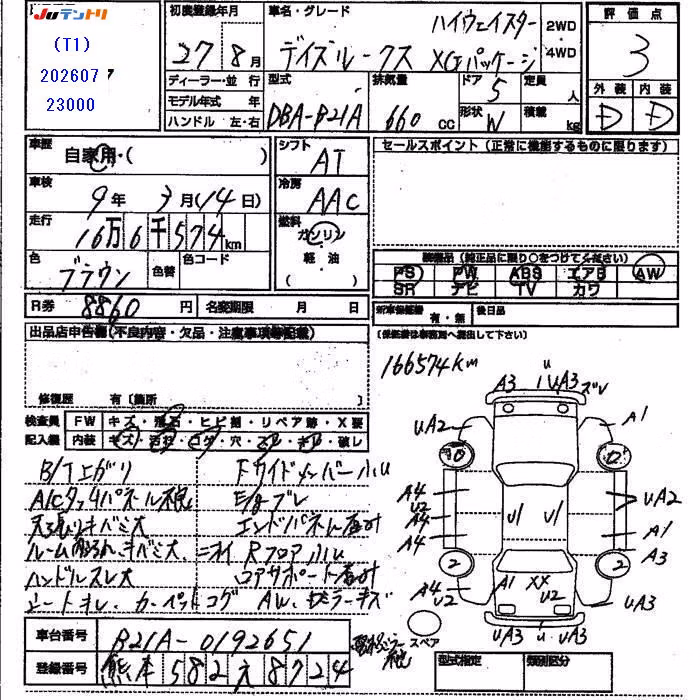 JUテントリ
(T1)
202607 7
23000
初度登録年月
27 8月
車名・グレード
ハイウェイスター
デイズルークス XGパッケージ
2WD
4WD
評価点
3
外装 内装
D D
ディーラー・並行
モデル年式 年
ハンドル 左・右
型式
DBA-B21A
排気量
660 CC
ドア 5
形状 W
定員 人
積載 kg
車歴
自家用・( )
車検
9年 3月(14日)
走行
16万6千574km
色
ブラウン
色替
色コード
シフト
AT
冷房
AAC
燃料
ガソリン
・
軽油
( )
セールスポイント(正常に機能するものに限ります)
装備品(純正品に限り○をつけてください)
PS PW ABS エアB AW
SR ナビ TV カワ
R券 8860 円
名変期限 月 日
新車保証書 有・無
後日品
(保証書は事務局へ提出して下さい)
出品店申告欄(不良内容・欠品・注意事項等記載)
修復歴 有〔箇所 〕
検査員
記入欄
FW キズ・飛石・ヒビ割・リペア跡・X要
内装 キズ・汚れ・コゲ・穴・スレ・キレ・破レ
B/Tエガリ
ハンドルスレ大
シートキレ、カーペットコゲ
Fサイドメンバー小u
E/gブレ
エンドパネル
Rフロア小u
コアサポート
AW、ドミラーキズ
166574Km
A3
u
UA3
ズレ
UA2
A1
A4
U2
A4
A4
UA2
A1
A3
2
2
A4
U2
A1
XX
U2
UA3
UA3
u
UA3
スペア
車台番号 B21A-0192651
登録番号 熊本 582 え 8724
型式指定
類別区分